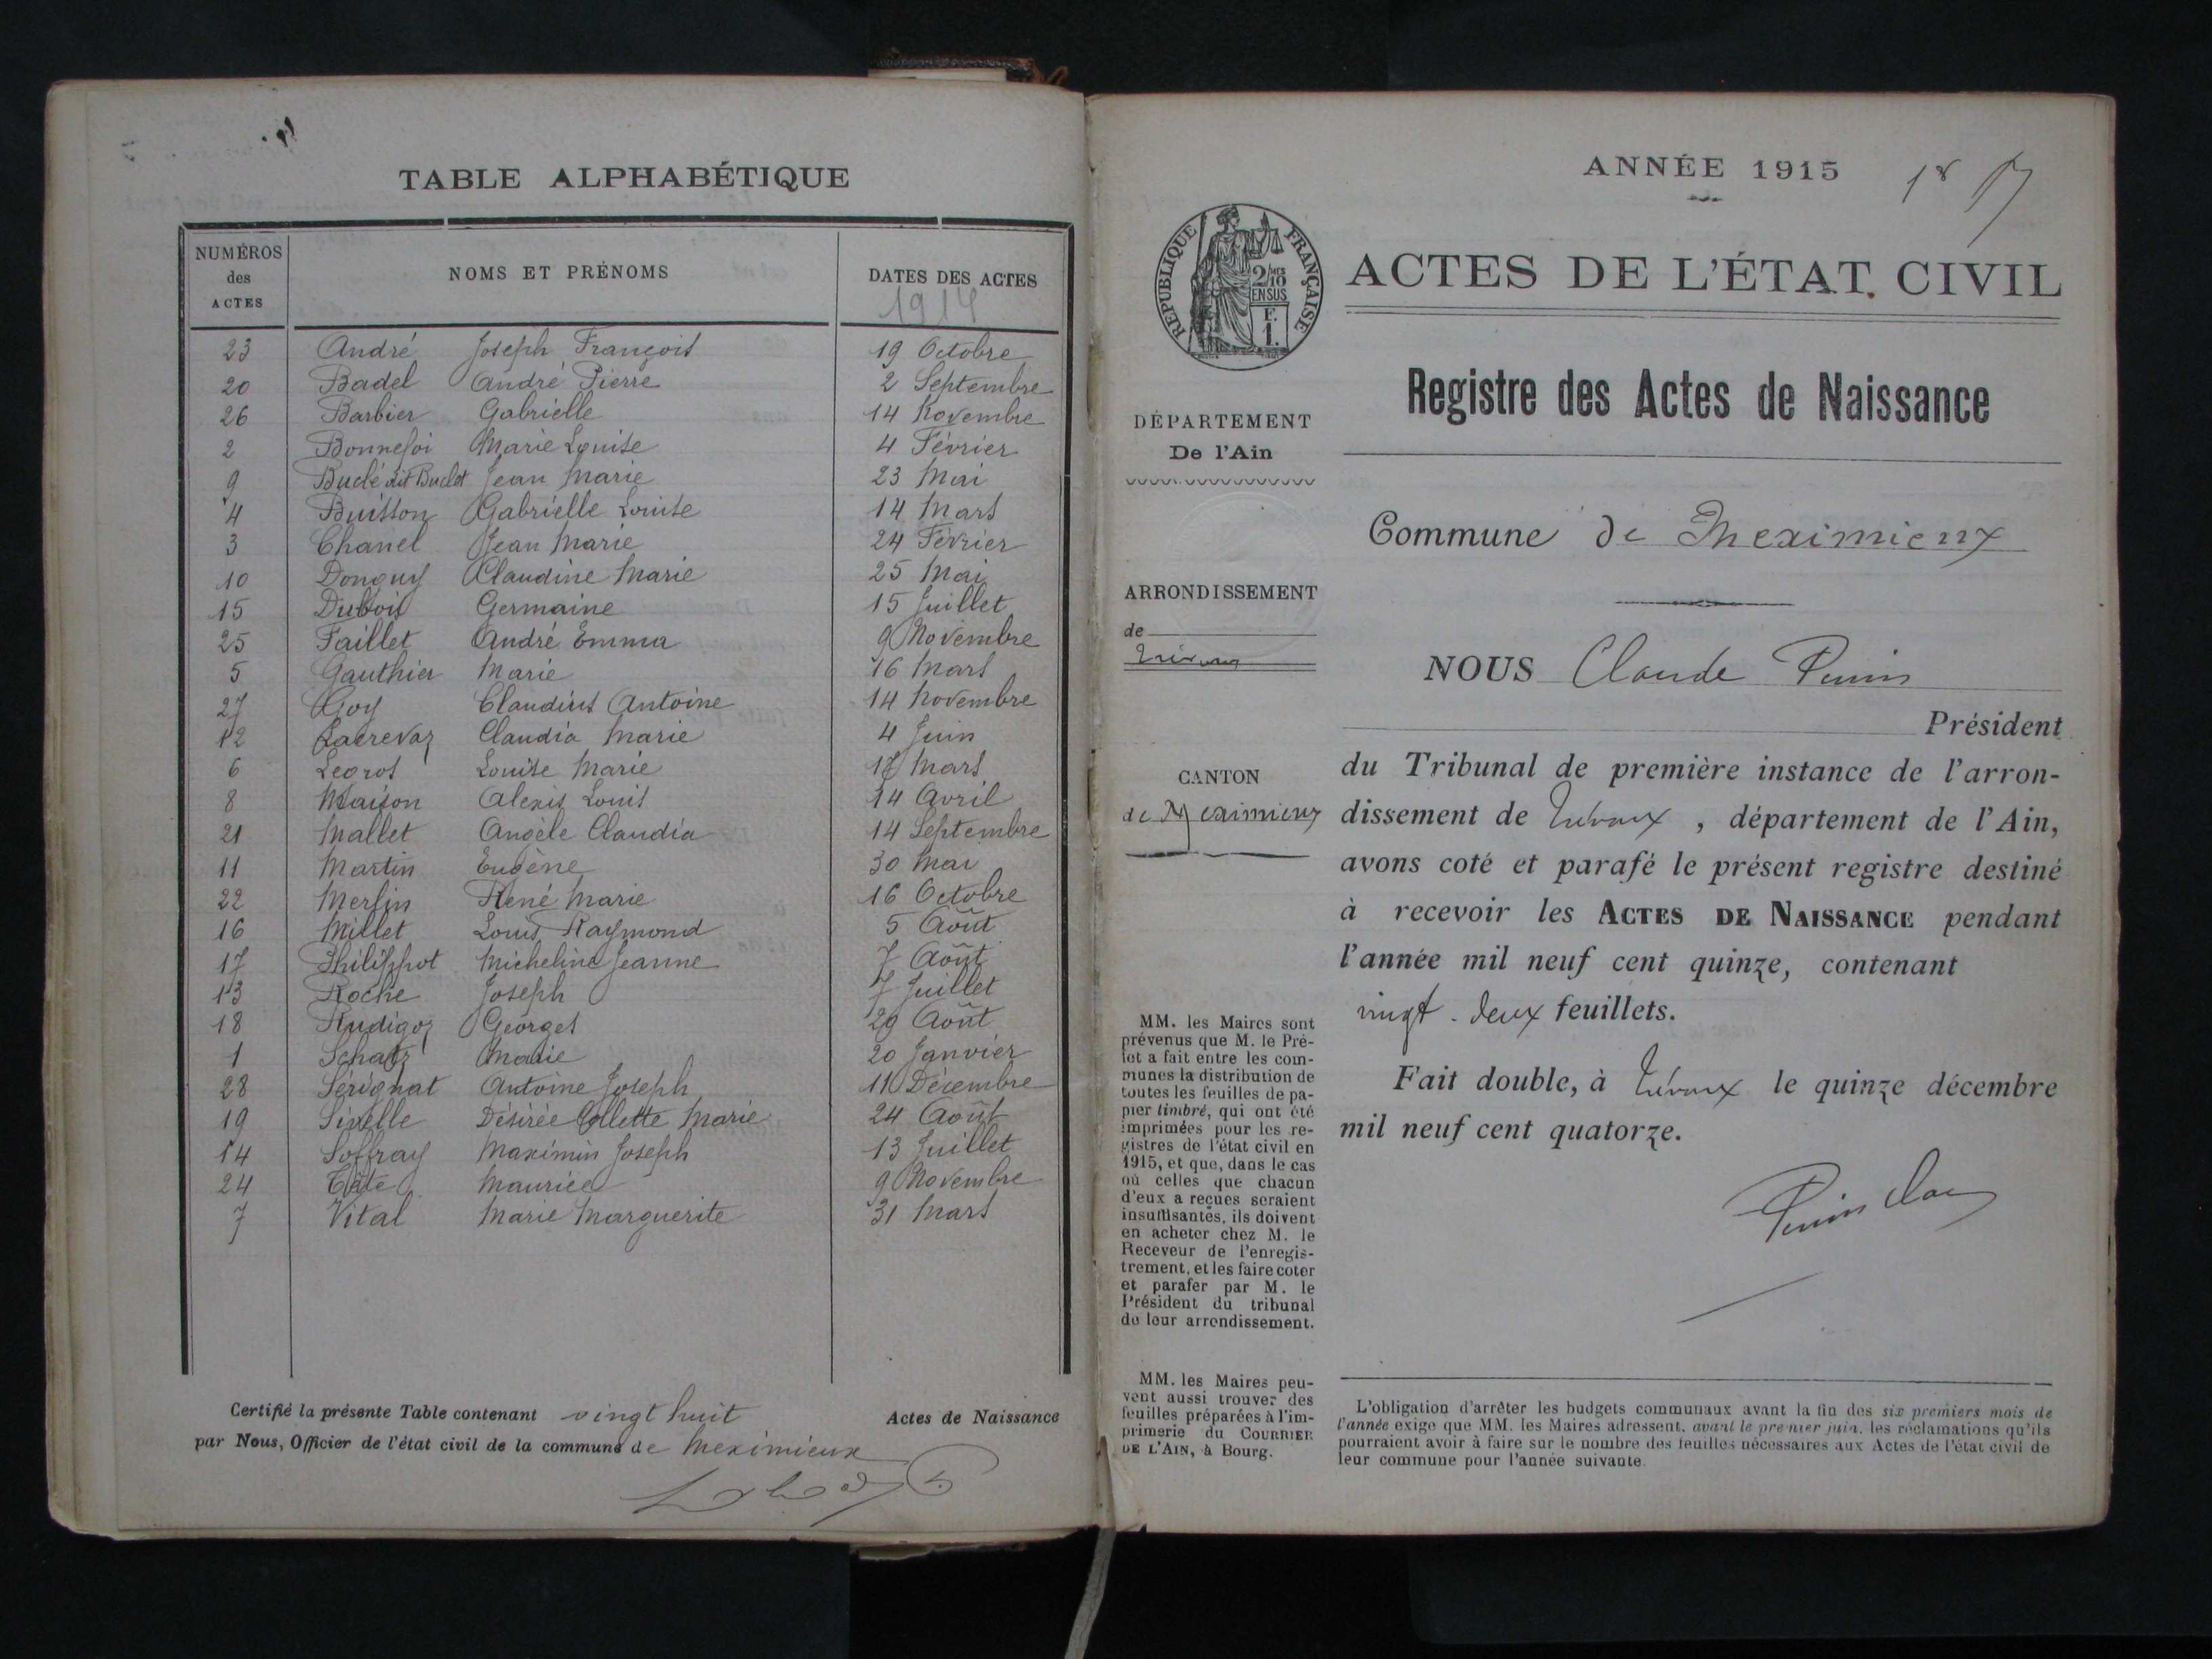 TABLE ALPHABÉTIQUE
NUMÉROS des ACTES
NOMS ET PRÉNOMS
DATES DES ACTES
1914
23 André Joseph François 19 Octobre
20 Badel André Pierre 2 Septembre
26 Barbier Gabrielle 14 Novembre
2 Bonnefoi Marie Louise 4 Février
9 Buclé dit Buclet Jean Marie 23 Mai
4 Buisson Gabrielle Louise 14 Mars
3 Chanel Jean Marie 24 Février
10 Donguy Claudine Marie 25 Mai
15 Dubois Germaine 15 Juillet
25 Faillet André Emma 9 Novembre
5 Gauthier Marie 16 Mars
27 Goy Claudius Antoine 14 Novembre
12 Lacrevaz Claudia Marie 4 Juin
6 Legros Louise Marie 17 Mars
8 Maison Alexis Louis 14 Avril
21 Mallet Angèle Claudia 14 Septembre
11 Martin Eugène 30 Mai
22 Merlin René Marie 16 Octobre
16 Millet Louis Raymond 5 Août
17 Philippot Micheline Jeanne 7 Août
13 Roche Joseph 7 Juillet
18 Rudigoz Georges 29 Août
1 Schatz Marie 20 Janvier
28 Sérignat Antoine Joseph 11 Décembre
19 Sivelle Désirée Collette Marie 24 Août
14 Soffray Maximin Joseph 13 Juillet
24 Tête Maurice 9 Novembre
7 Vital Marie Marguerite 31 Mars
Certifié la présente Table contenant vingt huit Actes de Naissance
par Nous, Officier de l'état civil de la commune de Meximieux
ANNÉE 1915
RÉPUBLIQUE FRANÇAISE
2/10MES
EN SUS
F.
1.
ACTES DE L'ÉTAT CIVIL
Registre des Actes de Naissance
DÉPARTEMENT
De l'Ain
Commune de Meximieux
ARRONDISSEMENT
de
Trévoux
NOUS Claude
Président
CANTON
de Meximieux
du Tribunal de première instance de l'arron-
dissement de Trévoux, département de l'Ain,
avons coté et parafé le présent registre destiné
à recevoir les ACTES DE NAISSANCE pendant
l'année mil neuf cent quinze, contenant
vingt-deux feuillets.
Fait double, à Trévoux le quinze décembre
mil neuf cent quatorze.
MM. les Maires sont
prévenus que M. le Pré-
fet a fait entre les com-
munes la distribution de
toutes les feuilles de pa-
pier timbré, qui ont été
imprimées pour les re-
gistres de l'état civil en
1915, et que, dans le cas
où celles que chacun
d'eux a reçues seraient
insuffisantes, ils doivent
en acheter chez M. le
Receveur de l'enregis-
trement, et les faire coter
et parafer par M. le
Président du tribunal
de leur arrondissement.
MM. les Maires peu-
vent aussi trouver des
feuilles préparées à l'im-
primerie du COURRIER
DE L'AIN, à Bourg.
L'obligation d'arrêter les budgets communaux avant la fin des six premiers mois de
l'année exige que MM. les Maires adressent, avant le premier juin, les réclamations qu'ils
pourraient avoir à faire sur le nombre des feuilles nécessaires aux Actes de l'état civil de
leur commune pour l'année suivante.